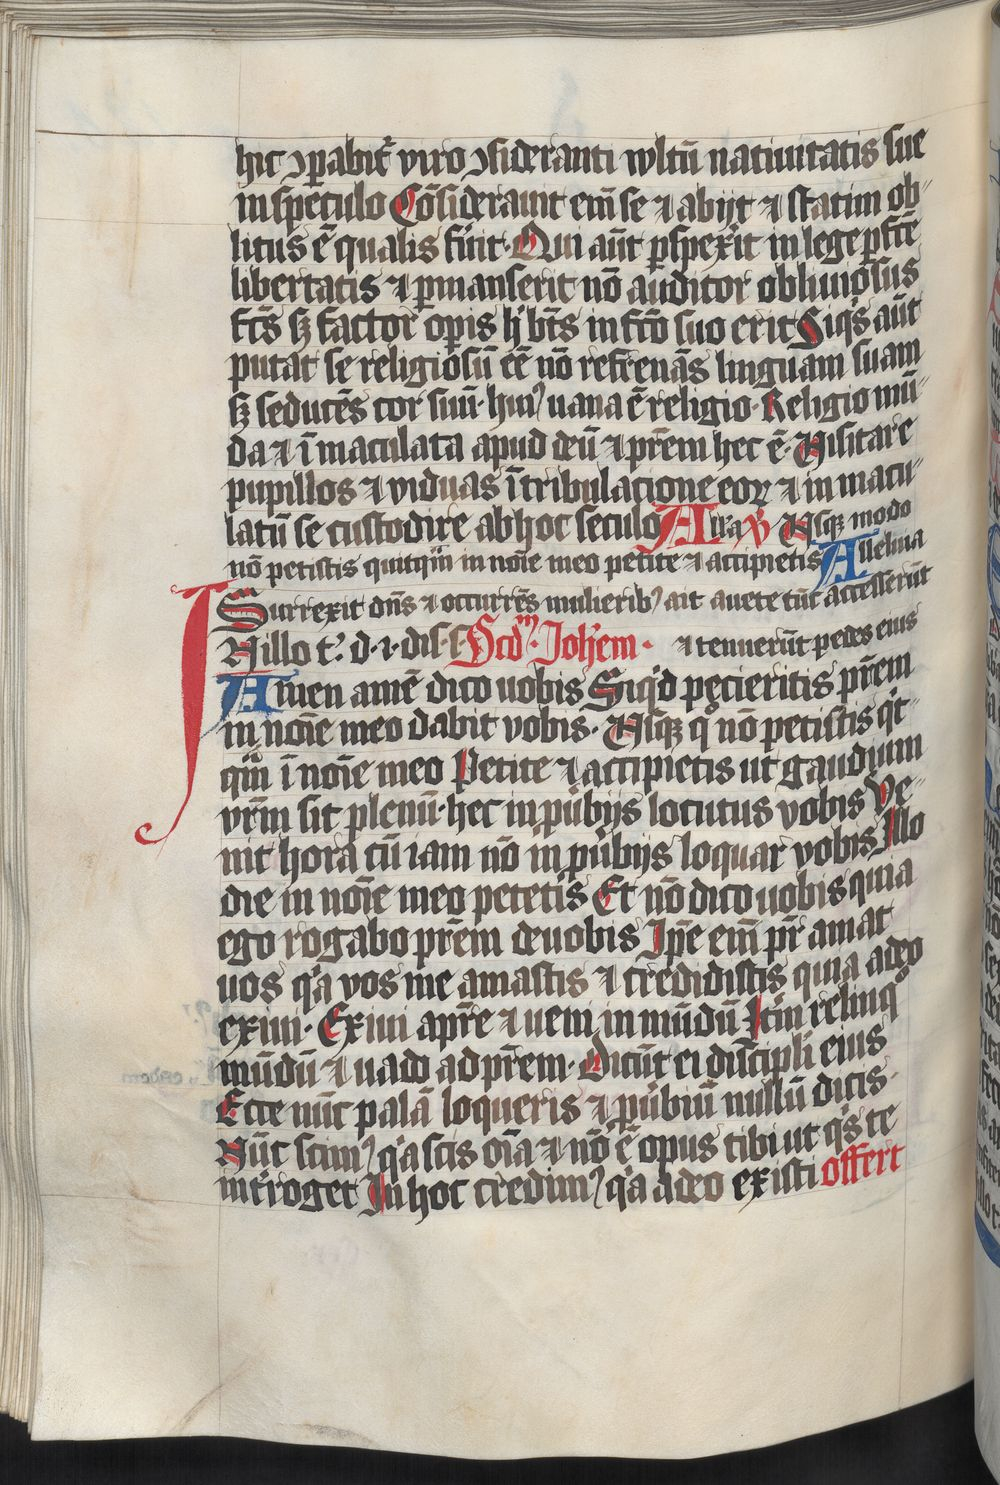 hic ꝯparabit᷑ viro ꝯsideranti wltū natiuitatis sue
in speculo Cōsiderauit em̄ se ⁊ abijt ⁊ statim ob⸗
litus ē qualis fu̇it· Qui aūt ꝑspexit in lege ꝑfc̄e
libertatis ⁊ ꝑmanserit nō auditor obliuiosus
fcs̄ sꝫ factor oꝑis h̄ bt̄s in fcō suo erit Siqⁱs aūt
putat se religiosū eē nō refrenās linguam suam
sꝫ seducēs cor suū· huiꝰ uana ē religio· Religio mū⸗
da ⁊ īmaculata apud deū ⁊ pr̄em hec ē· Visitare
pupillos ⁊ viduas ī tribulacione eoꝝ ⁊ in macu⸗
latū se custodire ab hoc seculo All'a ℣ Vsqꝫ modo
nō petistis quitqᵐ in noīe meo petite ⁊ accipietis Alleluia
Surrexit dn̄s ⁊ occurrēs mulieribꝰ ait auete tūc accesserūt
In illo t̄· d· i· dis· s· Scdᵐ· Joh̄em· ⁊ tenuerūt pedes eius
Amen amē dico uobis Siqⁱd pecieritis pr̄em
in noīe meo dabit vobis· Vsqꝫ qͦ nō petistis qⁱt⸗
qᵐ ī noīe meo Petite ⁊ accipietis ut gaudium
vr̄m sit plenū· hec in ꝓūbijs locutus vobis Ve⸗
nit hora cū iam nō in ꝓūbijs loquar vobis Illo
die in noīe meo petetis Et nō dico uobis quia
ego rogabo pr̄em de uobis Ip̄e em̄ pr̄ amat
uos qͣa vos me amastis ⁊ credidistis quia a deo
exiui· Exiui a pr̄e ⁊ ueni in mūdū Itm̄ relinqͦ
mūdū ⁊ uado ad pr̄em· Dicūt ei discipli̅ eius
Ecce nūc palā loqueris ⁊ ꝓūbiū nullū dicis·
Nūc scimꝰ qͣa scis oīa ⁊ nō ē opus tibi ut qⁱs te
int̄roget In hoc credimꝰ qͣa a deo existi offert